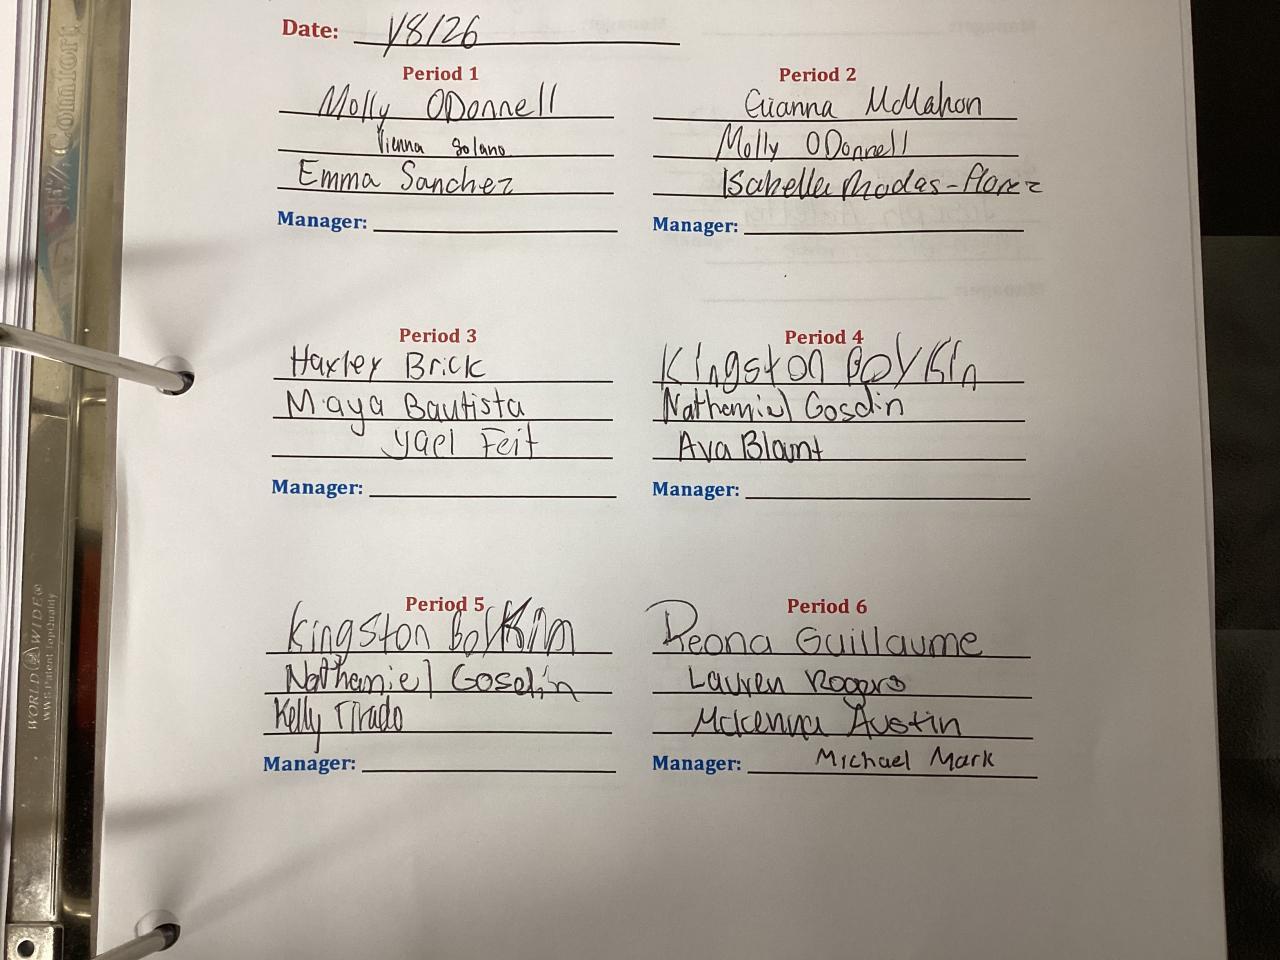 Date: 1/8/26
Period 1
Molly ODonnell
Vienna Solano
Emma Sanchez
Manager:
Period 2
Gianna McMahon
Molly ODonnell
Isabella Rhodas-Florez
Manager:
Period 3
Haxley Brick
Maya Bautista
Yael Feit
Manager:
Period 4
Kingston Boykin
Nathaniel Gosdin
Ava Blant
Manager:
Period 5
Kingston Boykin
Nathaniel Gosdin
Kelly Tirado
Manager:
Period 6
Deona Guillaume
Lauren Rogers
Mckenna Austin
Manager: Michael Mark
% Comfort
WORLD WIDE